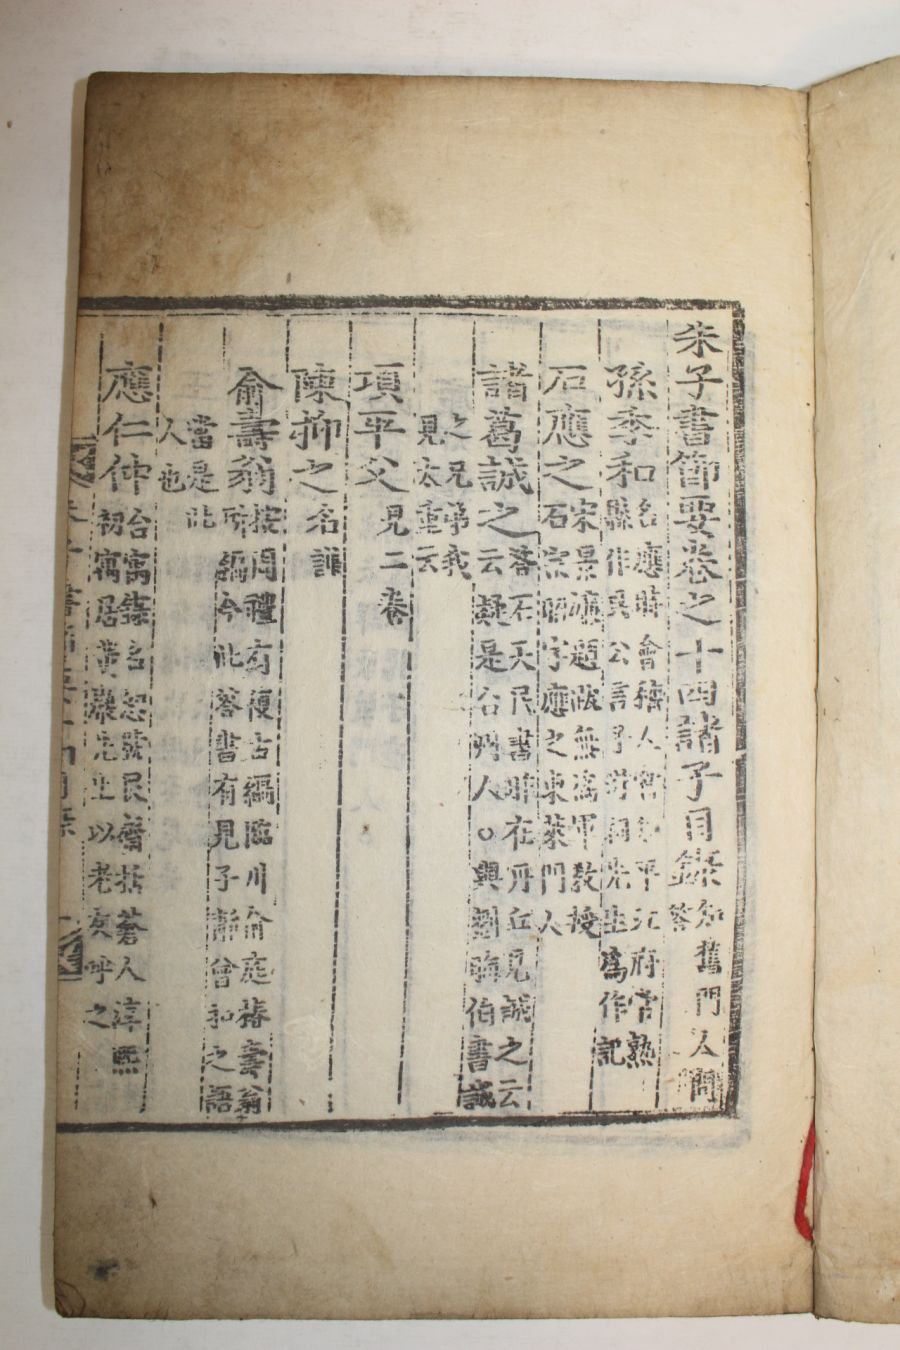 朱子書節要卷之十四諸子目錄知舊門人問答
孫季和名應時會稽人官知平江府常熟縣作吳公言子游祠先生爲作記
石應之宋景濂題跋無爲軍教授石宗昭字應之東萊門人
諸葛誠之答石天民書昨在丹丘見誠之云云疑是台州人○與劉晦伯書誠
之兄弟我見太重云
項平父見二卷
陳抑之名謙
兪壽翁按周禮有復古編臨川兪庭椿壽翁所編今此答書有見子靜曾扣之語
當是此人也
應仁仲台寓錄名恕號艮齋括蒼人淳熙初寓居黃巖先生以老友呼之